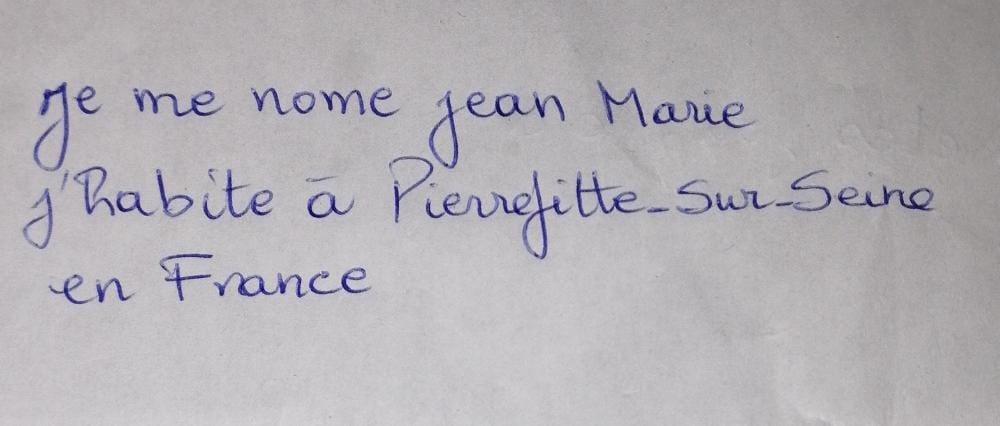 Je me nome jean Marie
j'habite à Pierrefitte-Sur-Seine
en France